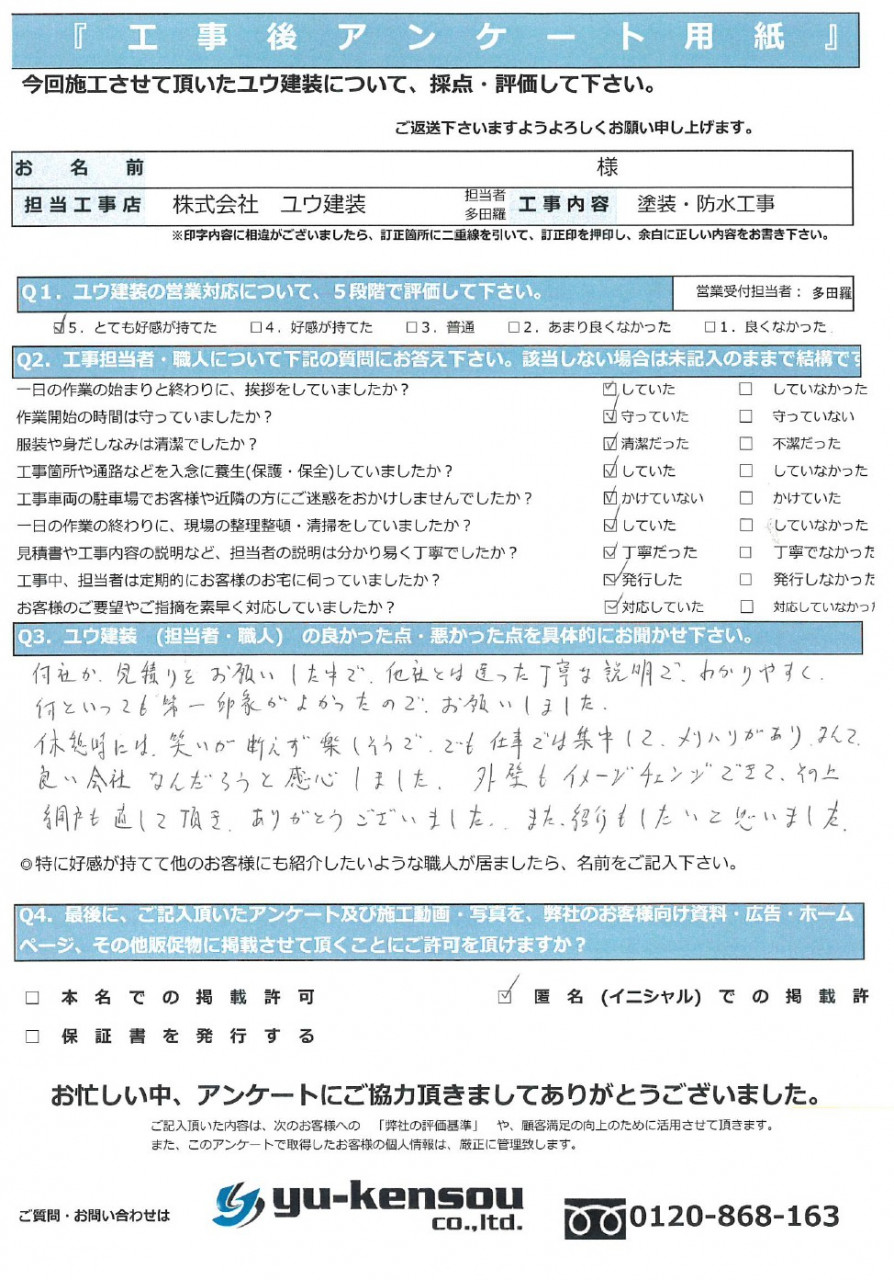 『工事後アンケート用紙』
今回施工させて頂いたユウ建装について、採点・評価して下さい。
ご返送下さいますようよろしくお願い申し上げます。
お名前 様
担当工事店 株式会社 ユウ建装 担当者 多田羅 工事内容 塗装・防水工事
※印字内容に相違がございましたら、訂正箇所に二重線を引いて、訂正印を押印し、余白に正しい内容をお書き下さい。
Q1．ユウ建装の営業対応について、５段階で評価して下さい。 営業受付担当者： 多田羅
☑5．とても好感が持てた □4．好感が持てた □3．普通 □2．あまり良くなかった □1．良くなかった
Q2．工事担当者・職人について下記の質問にお答え下さい。該当しない場合は未記入のままで結構です
一日の作業の始まりと終わりに、挨拶をしていましたか？ ☑していた □ していなかった
作業開始の時間は守っていましたか？ ☑守っていた □ 守っていない
服装や身だしなみは清潔でしたか？ ☑清潔だった □ 不潔だった
工事箇所や通路などを入念に養生(保護・保全)していましたか？ ☑していた □ していなかった
工事車両の駐車場でお客様や近隣の方にご迷惑をおかけしませんでしたか？ ☑かけていない □ かけていた
一日の作業の終わりに、現場の整理整頓・清掃をしていましたか？ ☑していた □ していなかった
見積書や工事内容の説明など、担当者の説明は分かり易く丁寧でしたか？ ☑丁寧だった □ 丁寧でなかった
工事中、担当者は定期的にお客様のお宅に伺っていましたか？ ☑発行した □ 発行しなかった
お客様のご要望やご指摘を素早く対応していましたか？ ☑対応していた □ 対応していなかっ
Q3．ユウ建装 (担当者・職人) の良かった点・悪かった点を具体的にお聞かせ下さい。
何社か、見積りをお願いした中で、他社とは違った丁寧な説明で、わかりやすく、
何といっても第一印象がよかったので、お願いしました。
休憩時には、笑いが断えず楽しそうで、でも仕事では集中して、メリハリがあり、なんて
良い会社なんだろうと感心しました。外壁もイメージチェンジできて、その上
網戸も直して頂き、ありがとうございました。また、紹介もしたいと思いました。
◎特に好感が持てて他のお客様にも紹介したいような職人が居ましたら、名前をご記入下さい。
Q4．最後に、ご記入頂いたアンケート及び施工動画・写真を、弊社のお客様向け資料・広告・ホーム
ページ、その他販促物に掲載させて頂くことにご許可を頂けますか？
□ 本名での掲載許可 ☑ 匿名(イニシャル)での掲載許
□ 保証書を発行する
お忙しい中、アンケートにご協力頂きましてありがとうございました。
ご記入頂いた内容は、次のお客様への 「弊社の評価基準」 や、顧客満足の向上のために活用させて頂きます。
また、このアンケートで取得したお客様の個人情報は、厳正に管理致します。
ご質問・お問い合わせは yu-kensou co.,ltd. 0120-868-163